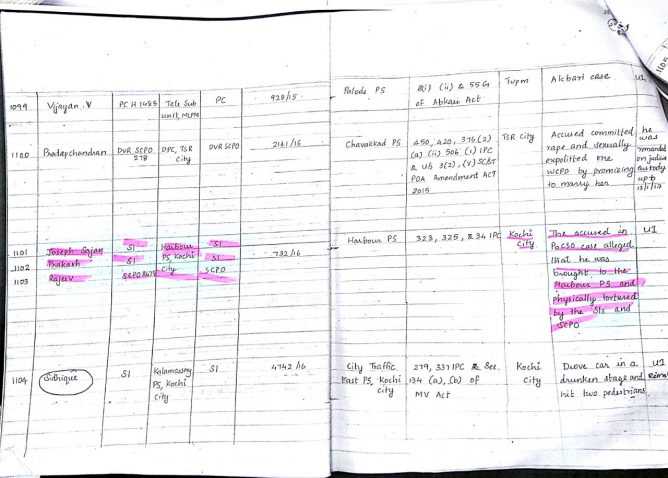 1099 Vijayan. V PC H 1485 Tele Sub PC 928/15 Palode PS 8(i) (ii) & 55G Tvpm Akbari case U1
unit, MLPM of Abkari Act
1100 Pradeepchandran DVR SCPO DPC, TSR DVR SCPO 2161/15 Chavakkad PS 450, 420, 376(2) TSR City Accused committed he
278 City (a) (ii) 506 (1) IPC rape and sexually was
& U/s 3(2), (v) SC&ST expolitted one remanded
POA Amendment Act WCPO by promising on judicial
2015 to marry her custody
upto
1101 Joseph Sajan SI Harbour SI 732/16 Harbour PS 323, 325, & 34 IPC Kochi The accused in U1
1102 Prakash SI PS, Kochi SI City POCSO case alleged
1103 Rajeev City SCPO that he was
brought to the
Harbour PS and
Physically tortured
by the SIs and
SCPO
1104 Sidhique SI Kalamassery SI 4742/16 City Traffic 279, 337 IPC & Sec. Kochi Drove car in a U1
PS, Kochi East PS, Kochi 134 (a), (b) of City drunken stage and
City City MV Act hit two pedestrians